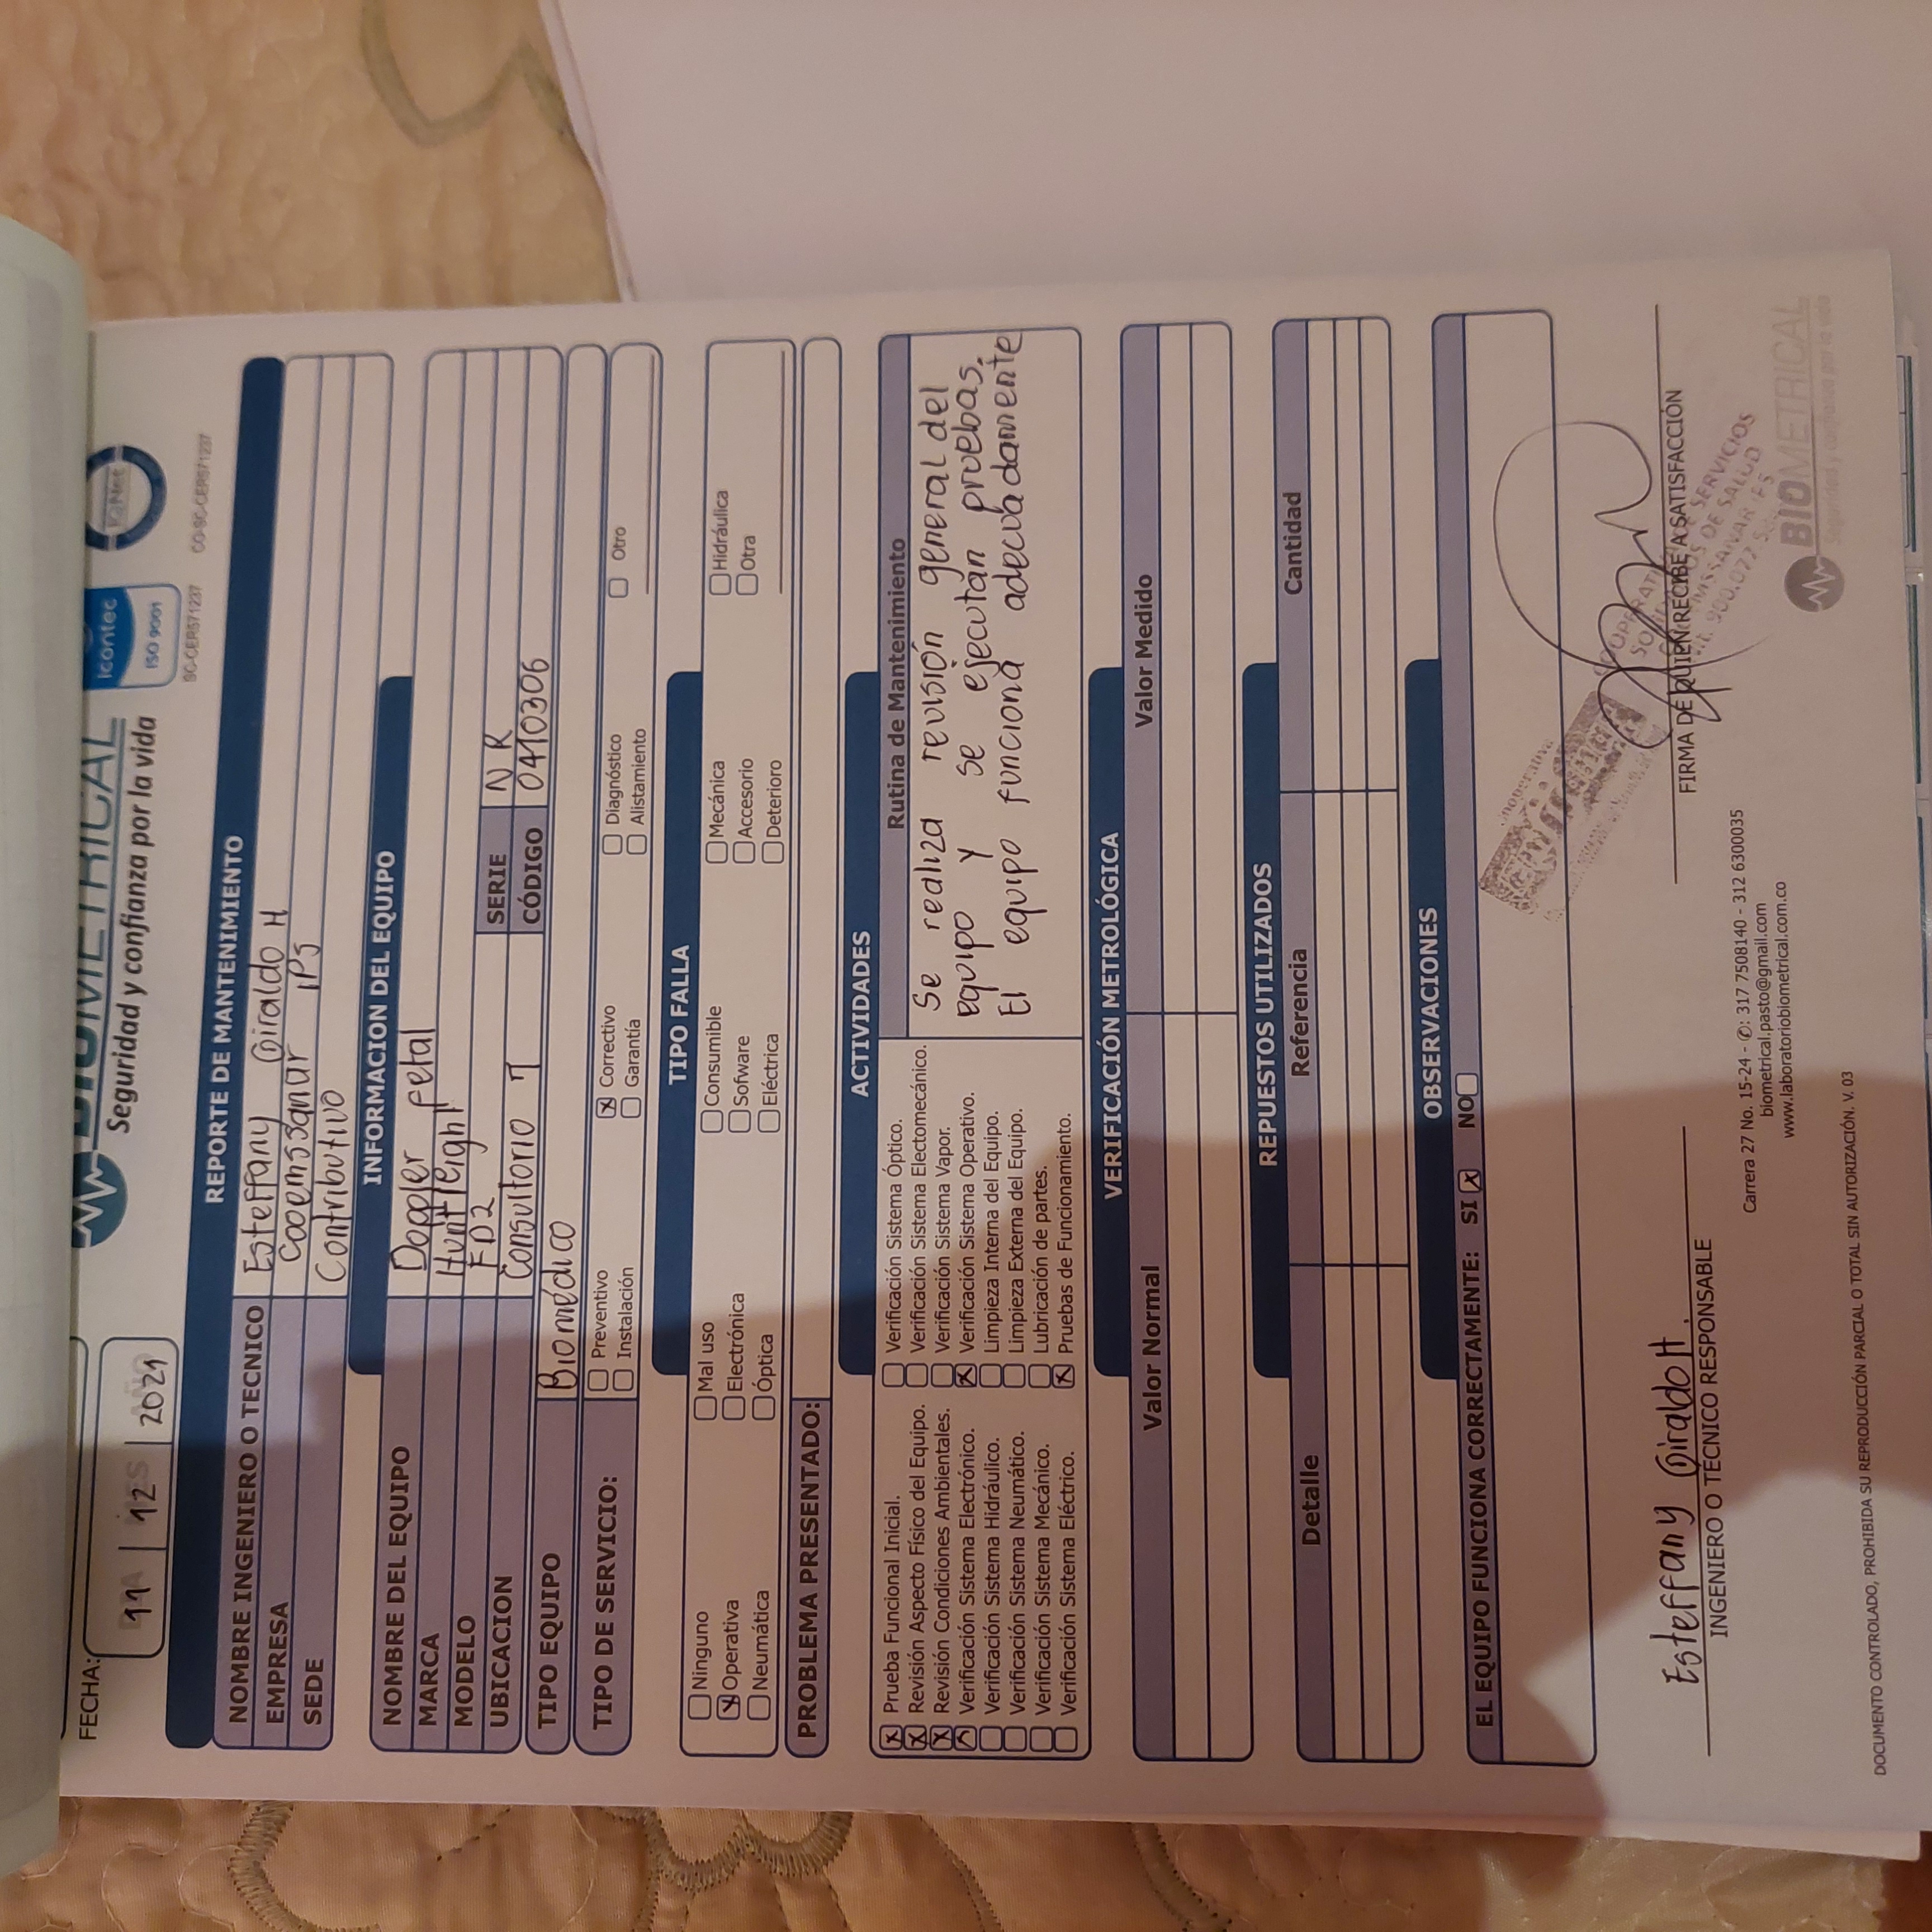 BIOMETRICAL
Seguridad y confianza por la vida
icontec
ISO 9001
IQNet
SC-CER571237
CO-SC-CER571237
FECHA:
11 12 2021
REPORTE DE MANTENIMIENTO
NOMBRE INGENIERO O TECNICO Esteffany Giraldo H
EMPRESA Cooemssanar IPS
SEDE Contributivo
INFORMACION DEL EQUIPO
NOMBRE DEL EQUIPO Doppler fetal
MARCA Huntleigh
MODELO FD2
UBICACION Consultorio 7
SERIE N R
CÓDIGO 0410306
TIPO EQUIPO Biomédico
TIPO DE SERVICIO:
Preventivo ☒ Correctivo Diagnóstico Otro
Instalación Garantía Alistamiento
TIPO FALLA
Ninguno Mal uso Consumible Mecánica Hidráulica
☒ Operativa Electrónica Sofware Accesorio Otra
Neumática Óptica Eléctrica Deterioro
PROBLEMA PRESENTADO:
ACTIVIDADES
☒ Prueba Funcional Inicial.
☒ Revisión Aspecto Físico del Equipo.
☒ Revisión Condiciones Ambientales.
☒ Verificación Sistema Electrónico.
Verificación Sistema Hidráulico.
Verificación Sistema Neumático.
Verificación Sistema Mecánico.
Verificación Sistema Eléctrico.
Verificación Sistema Óptico.
Verificación Sistema Electomecánico.
Verificación Sistema Vapor.
☒ Verificación Sistema Operativo.
Limpieza Interna del Equipo.
Limpieza Externa del Equipo.
Lubricación de partes.
☒ Pruebas de Funcionamiento.
Rutina de Mantenimiento
Se realiza revisión general del
equipo y se ejecutan pruebas.
El equipo funciona adecuadamente
VERIFICACIÓN METROLÓGICA
Valor Normal Valor Medido
REPUESTOS UTILIZADOS
Detalle Referencia Cantidad
OBSERVACIONES
EL EQUIPO FUNCIONA CORRECTAMENTE: SI ☒ NO
Esteffany Giraldo H.
INGENIERO O TÉCNICO RESPONSABLE
FIRMA DE QUIEN RECIBE A SATISFACCIÓN
SERVICIOS
DE SALUD
Carrera 27 No. 15-24 - ✆: 317 7508140 - 312 6300035
biometrical.pasto@gmail.com
www.laboratoriobiometrical.com.co
BIOMETRICAL
Seguridad y confianza por la vida
DOCUMENTO CONTROLADO, PROHIBIDA SU REPRODUCCIÓN PARCIAL O TOTAL SIN AUTORIZACIÓN. V. 03